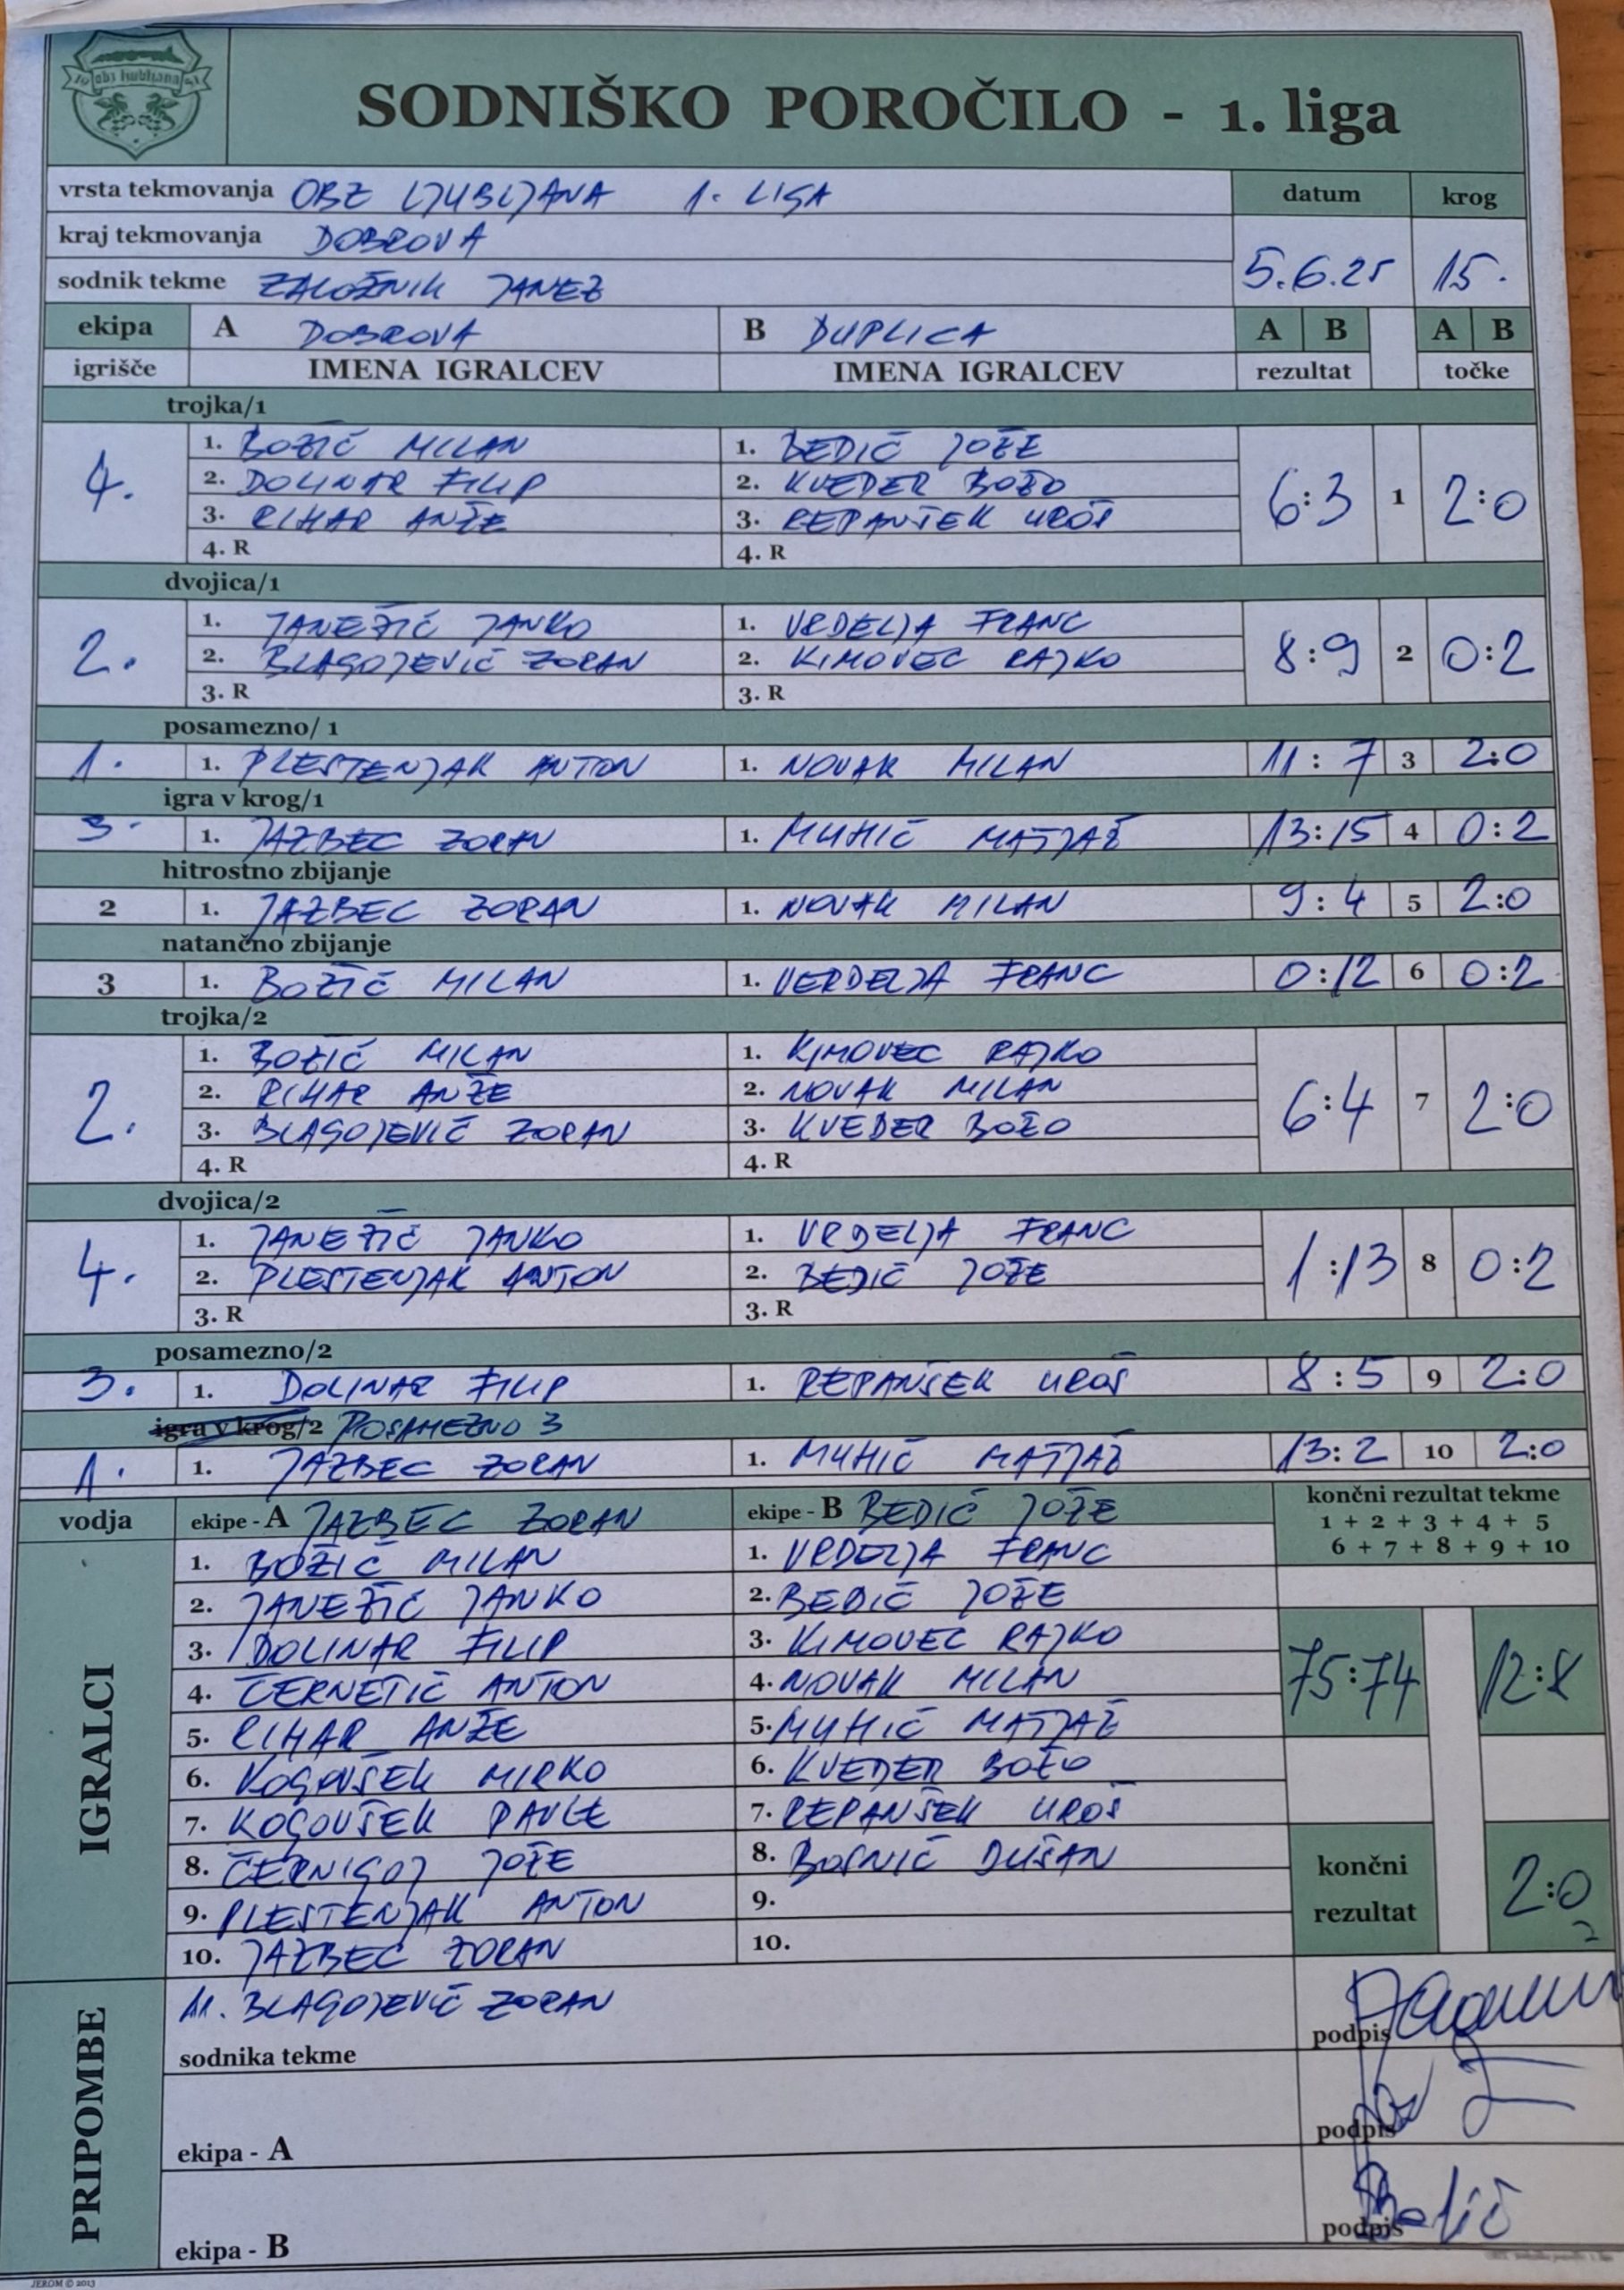 obz ljubljana
SODNIŠKO POROČILO - 1. liga
vrsta tekmovanja OBZ LJUBLJANA 1. LIGA datum krog
kraj tekmovanja DOBROVA
sodnik tekme ZALOŽNIK JANEZ 5.6.25 15.
ekipa A DOBROVA B DUPLICA A B A B
igrišče IMENA IGRALCEV IMENA IGRALCEV rezultat točke
trojka/1
4. 1. BOŽIČ MILAN 1. BEDIČ JOŽE 6:3 1 2:0
2. DOLINAR FILIP 2. KVEDER BOŽO
3. RIHAR ANŽE 3. REPANŠEK UROŠ
4. R 4. R
dvojica/1
2. 1. JANEŽIČ JANKO 1. VRDELJA FRANC 8:9 2 0:2
2. BLAGOJEVIČ ZORAN 2. KIMOVEC RAJKO
3. R 3. R
posamezno/ 1
1. 1. PLESTENJAK ANTON 1. NOVAK MILAN 11:7 3 2:0
igra v krog/1
3. 1. JAZBEC ZORAN 1. MUHIČ MATJAŽ 13:15 4 0:2
hitrostno zbijanje
2 1. JAZBEC ZORAN 1. NOVAK MILAN 9:4 5 2:0
natančno zbijanje
3 1. BOŽIČ MILAN 1. VERDELJA FRANC 0:12 6 0:2
trojka/2
2. 1. BOŽIČ MILAN 1. KIMOVEC RAJKO 6:4 7 2:0
2. RIHAR ANŽE 2. NOVAK MILAN
3. BLAGOJEVIČ ZORAN 3. KVEDER BOŽO
4. R 4. R
dvojica/2
4. 1. JANEŽIČ JANKO 1. VRDELJA FRANC 1:13 8 0:2
2. PLESTENJAK ANTON 2. BEDIČ JOŽE
3. R 3. R
posamezno/2
3. 1. DOLINAR FILIP 1. REPANŠEK UROŠ 8:5 9 2:0
igra v krog/2 POSAMEZNO 3
1. 1. JAZBEC ZORAN 1. MUHIČ MATJAŽ 13:2 10 2:0
vodja ekipe - A JAZBEC ZORAN ekipe - B BEDIČ JOŽE končni rezultat tekme
1 + 2 + 3 + 4 + 5
6 + 7 + 8 + 9 + 10
IGRALCI
1. BOŽIČ MILAN 1. VRDELJA FRANC
2. JANEŽIČ JANKO 2. BEDIČ JOŽE
3. DOLINAR FILIP 3. KIMOVEC RAJKO
4. ČERNETIČ ANTON 4. NOVAK MILAN 75:74 12:8
5. RIHAR ANŽE 5. MUHIČ MATJAŽ
6. KOGOVŠEK MIRKO 6. KVEDER BOŽO
7. KOGOVŠEK PAVLE 7. REPANŠEK UROŠ
8. ČERNIGOJ JOŽE 8. BOSNIČ DUŠAN končni
9. PLESTENJAK ANTON 9. rezultat 2:0
10. JAZBEC ZORAN 10.
PRIPOMBE
11. BLAGOJEVIČ ZORAN
sodnika tekme podpis
ekipa - A podpis
ekipa - B podpis Bedič
JEROM © 2013